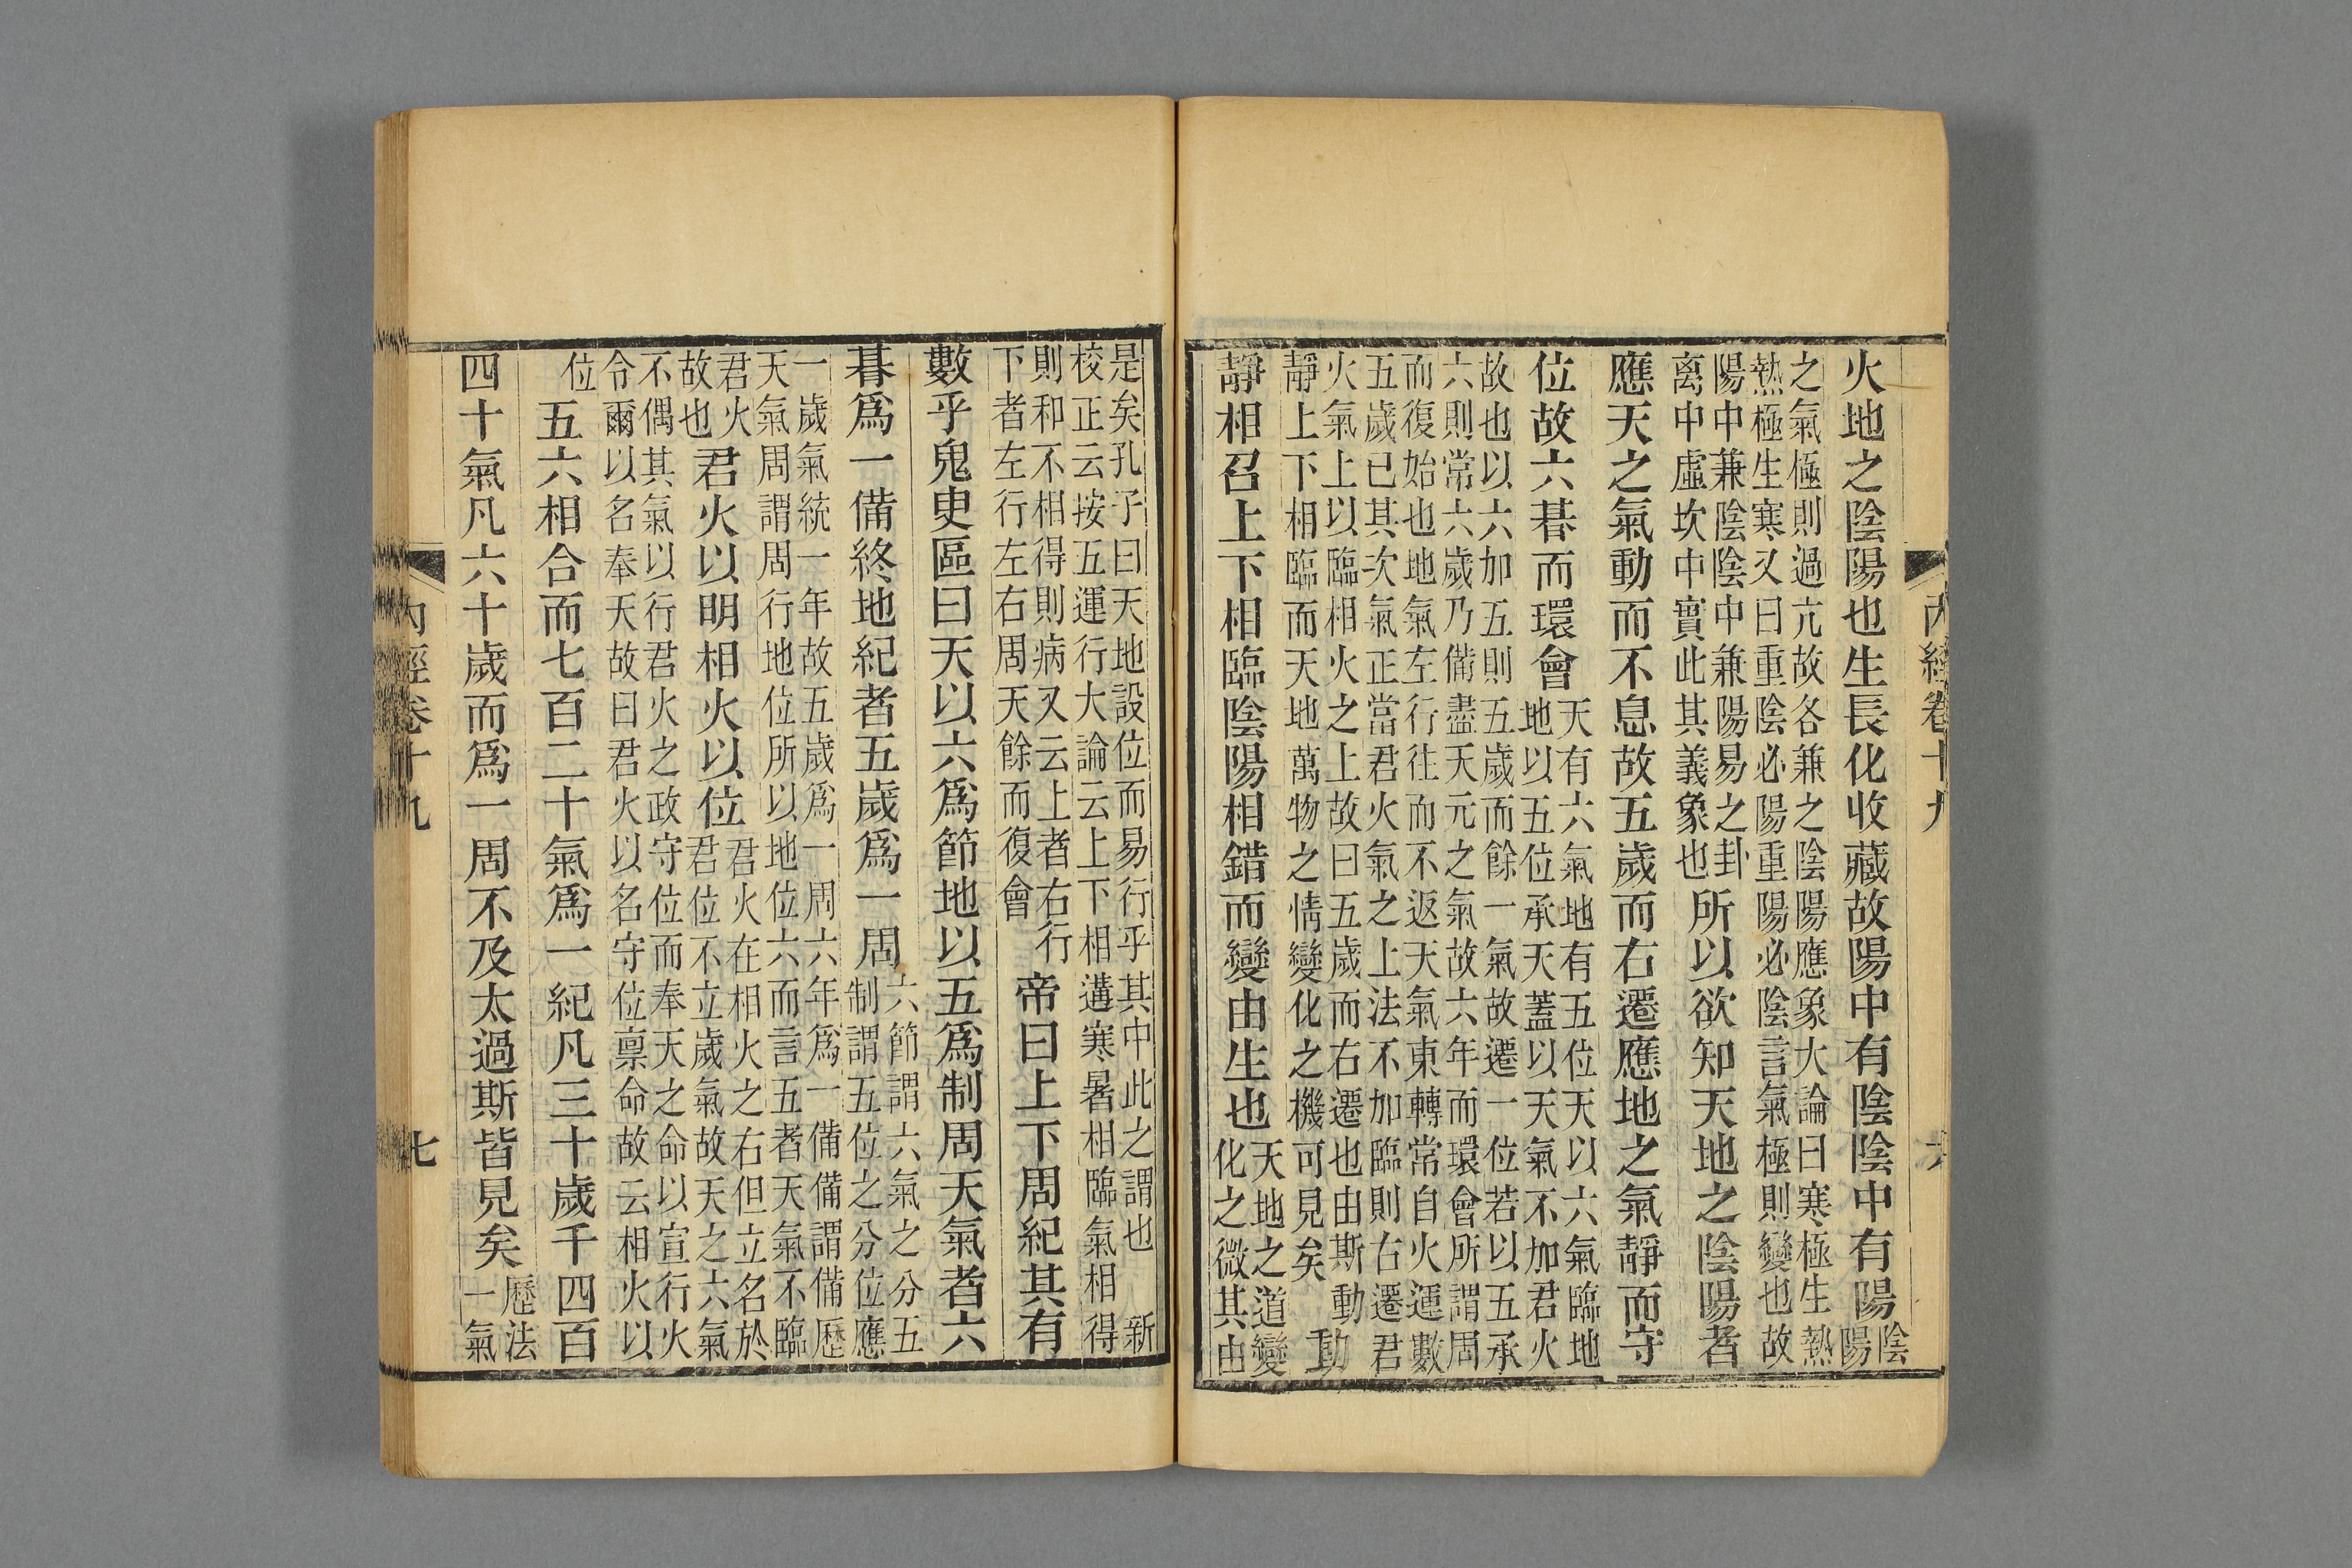 內經卷十九
六
火地之陰陽也生長化收藏故陽中有陰陰中有陽陰陽
之氣極則過亢故各兼之陰陽應象大論曰寒極生熱
熱極生寒又曰重陰必陽重陽必陰言氣極則變也故
陽中兼陰陰中兼陽易之卦
离中虛坎中實此其義象也所以欲知天地之陰陽者
應天之氣動而不息故五歲而右遷應地之氣靜而守
位故六朞而環會天有六氣地有五位天以六氣臨地
地以五位承天蓋以天氣不加君火
故也以六加五則五歲而餘一氣故遷一位若以五承
六則常六歲乃備盡天元之氣故六年而環會所謂周
而復始也地氣左行往而不返天氣東轉常自火運數
五歲已其次氣正當君火氣之上法不加臨則右遷君
火氣上以臨相火之上故曰五歲而右遷也由斯動
靜上下相臨而天地萬物之情變化之機可見矣動
靜相召上下相臨陰陽相錯而變由生也天地之道變
化之微其由
是矣孔子曰天地設位而易行乎其中此之謂也 新
校正云按五運行大論云上下相遘寒暑相臨氣相得
則和不相得則病又云上者右行
下者左行左右周天餘而復會帝曰上下周紀其有
數乎鬼臾區曰天以六爲節地以五爲制周天氣者六
朞爲一備終地紀者五歲爲一周六節謂六氣之分五
制謂五位之分位應
一歲氣統一年故五歲爲一周六年爲一備備謂備歷
天氣周謂周行地位所以地位六而言五者天氣不臨
君火
故也君火以明相火以位君火在相火之右但立名於
君位不立歲氣故天之六氣
不偶其氣以行君火之政守位而奉天之命以宣行火
令爾以名奉天故曰君火以名守位禀命故云相火以
位五六相合而七百二十氣爲一紀凡三十歲千四百
四十氣凡六十歲而爲一周不及太過斯皆見矣歷法
一氣
內經卷十九
七